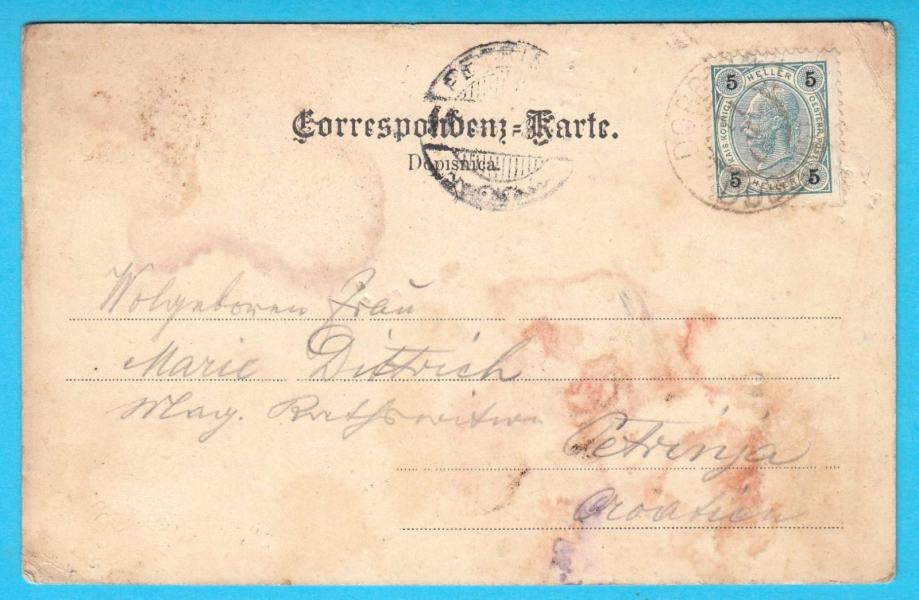 Correspondenz=Karte.
Dopisnica.
5 HELLER 5
KAIS KOENIGL
5 HELLER 5
Wolgeboren Frau
Marie Dittrich
Mag. Rathswitwe
Petrinja
Croatien